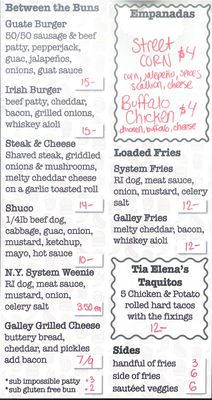 Between the Buns
Guate Burger
50/50 sausage & beef
patty, pepperjack,
guac, jalapeños,
onions, guat sauce
15-
Irish Burger
beef patty, cheddar,
bacon, grilled onions,
whiskey aioli
15-
Steak & Cheese
Shaved steak, griddled
onions & mushrooms,
melty cheddar cheese
on a garlic toasted roll
14-
Shuco
1/4lb beef dog,
cabbage, guac, onion,
mustard, ketchup,
mayo, hot sauce
10-
N.Y. System Weenie
RI dog, meat sauce,
mustard, onion,
celery salt 3.50 ea
Galley Grilled Cheese
buttery bread,
cheddar, and pickles
add bacon 7/9
*sub impossible patty +3
*sub gluten free bun +2
Empanadas
Street
Corn $4
corn, jalapeño, spices
scallion, cheese
Buffalo
Chicken $4
chicken, buffalo, cheese
Loaded Fries
System Fries
RI dog, meat sauce,
onion, mustard, celery
salt 12-
Galley Fries
melty cheddar, bacon,
whiskey aioli 12-
Tia Elena's
Taquitos
5 Chicken & Potato
rolled hard tacos
with the fixings
12-
Sides
handful of fries 3
side of fries 6
sautéed veggies 6